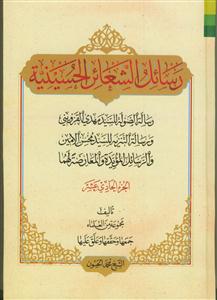 رسائل الشعائر الحسينية
رسالة الصولة للسيد مهدي القزويني
ورسالة التنزيه للسيد محسن الأمين
والرسائل المؤيدة والمعارضة لهما
الجزء الحادي عشر
تأليف
مجموعة من العلماء
جمعها وحققها وعلق عليها
الشيخ محمد الحسون